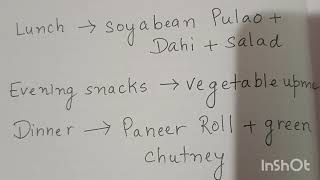 Lunch → soyabean Pulao +
Dahi + salad
Evening snacks → vegetable upma
Dinner → Paneer Roll + green
chutney
InShOt